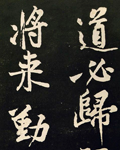 道必歸
將来勤